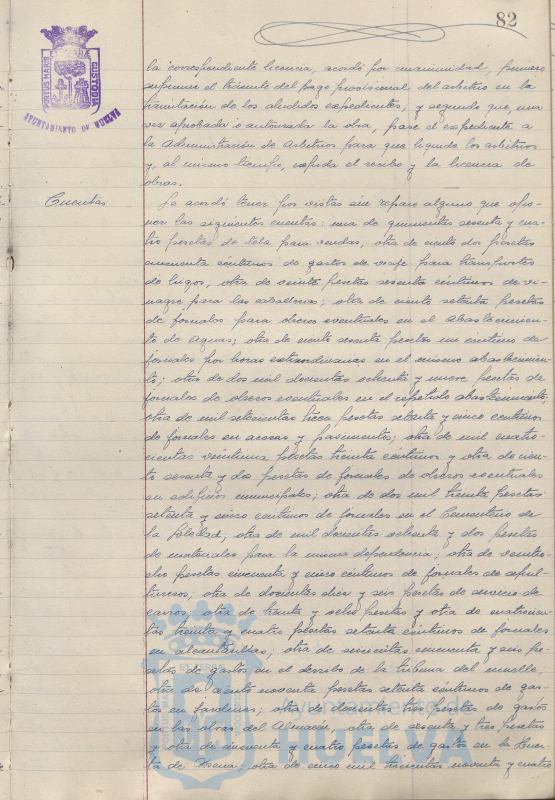 82
PORTUS MARIS
CUSTODIA
AYUNTAMIENTO DE HUELVA
la correspondiente licencia, acordó por unanimidad, primero
suprimir el trámite del pago provisional del arbitrio en la
tramitación de los aludidos expedientes, y segundo que, una
vez aprobada o autorizada la obra, pase el expediente a
la Administración de Arbitrios para que liquide los arbitrios
y, al mismo tiempo, expida el recibo y la licencia de
obras.
Cuentas
Se acordó tener por vistas sin reparo alguno que opo-
ner las siguientes cuentas: una de quinientas sesenta y cua-
tro pesetas de tela para vendas, otra de ciento dos pesetas
cincuenta céntimos de gastos de viaje para transportes
de Lugos, otra de veinte pesetas sesenta céntimos de vi-
nagre para las caballerías; otra de ciento setenta pesetas
de jornales para obreros eventuales en el Abastecimien-
to de Aguas; otra de ciento sesenta pesetas un céntimo de
jornales por horas extraordinarias en el mismo abastecimien-
to; otra de dos mil doscientas ochenta y nueve pesetas de
jornales de obreros eventuales en el repetido abastecimiento;
otra de mil setecientas trece pesetas setenta y cinco céntimos
de jornales en aceras y pavimentos; otra de mil cuatro-
cientas veintiuna pesetas treinta céntimos y otra de cien-
to sesenta y dos pesetas de jornales de obreros eventuales
en edificios municipales; otra de dos mil treinta pesetas
setenta y cinco céntimos de jornales en el Cementerio de
la Soledad; otra de mil doscientas ochenta y dos pesetas
de materiales para la misma dependencia; otra de veintio-
cho pesetas cincuenta y cinco céntimos de jornales de sepul-
tureros; otra de doscientas diez y seis pesetas de servicio de
carros, otra de treinta y ocho pesetas y otra de cuatrocien-
tas treinta y cuatro pesetas setenta céntimos de jornales
en alcantarillas; otra de seiscientas cincuenta y seis pe-
setas de gastos en el derribo de la tribuna del muelle,
otra de ciento noventa pesetas setenta céntimos de gas-
tos en jardines; otra de doscientas tres pesetas de gastos
en las obras del Almacén, otra de sesenta y tres pesetas
y otra de cincuenta y cuatro pesetas de gastos en la Huer-
ta de Mena; otra de cinco mil trescientas noventa y cuatro
Ayuntamiento de
HUELVA